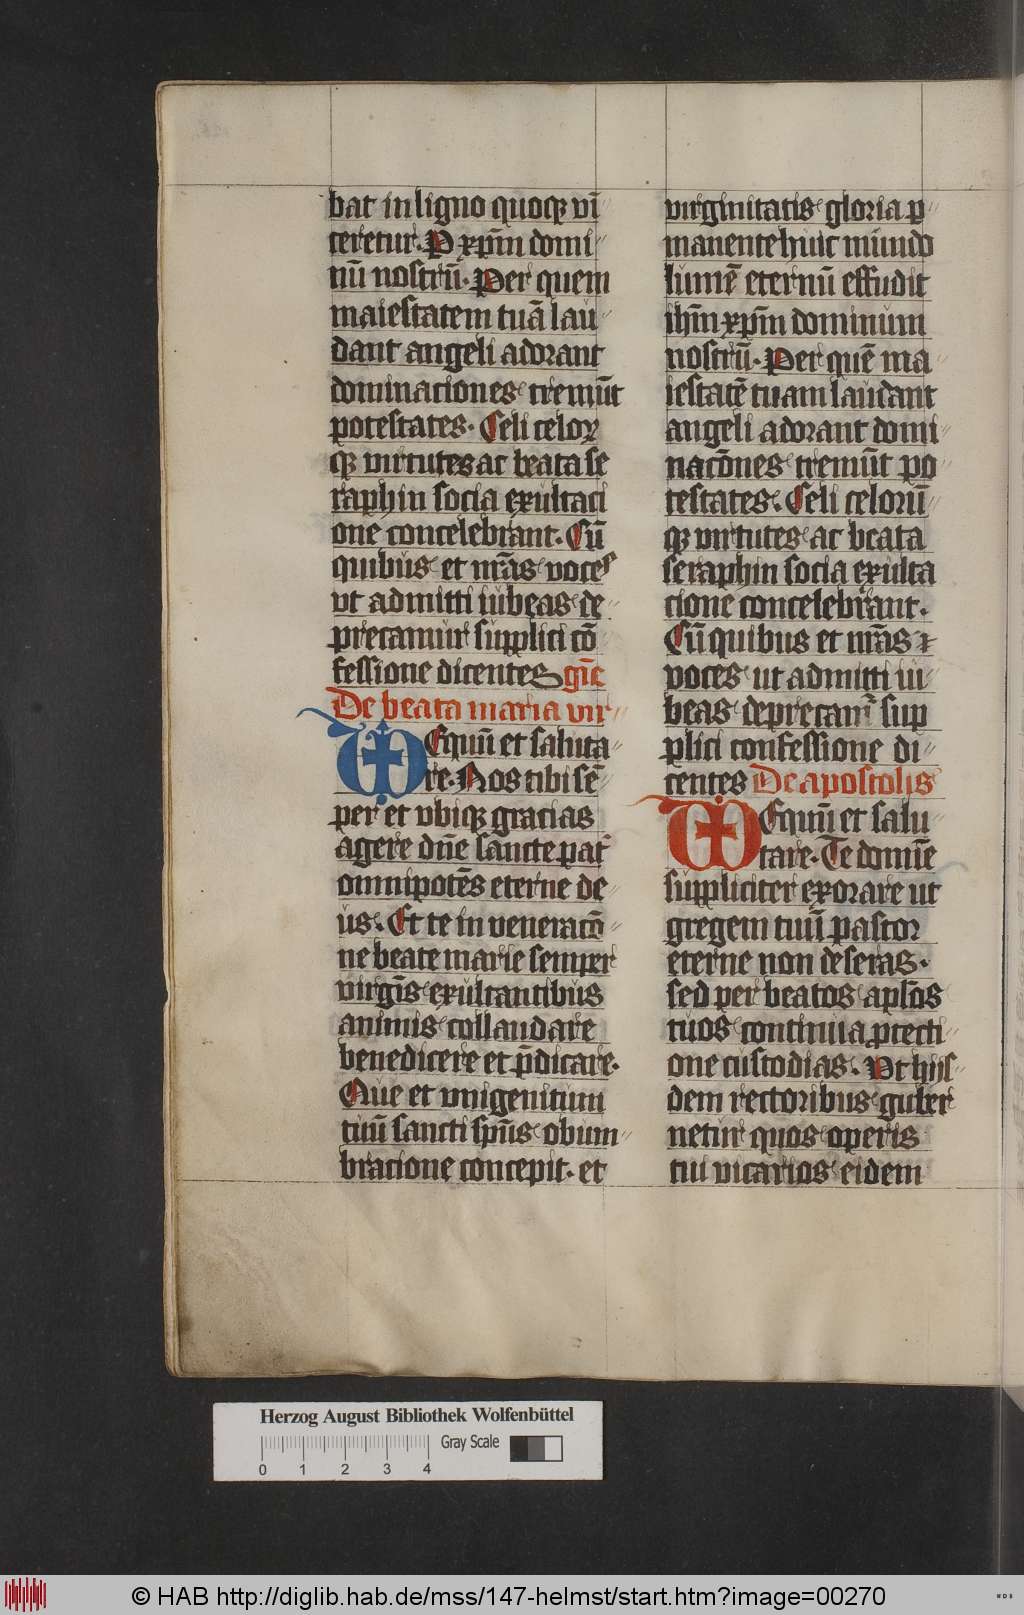 bat in ligno quoqꝫ vī
ceretur. P xp̄m domi
nū nostrū. Per quem
maiestatem tuā lau
dant angeli adorant
dominaciones tremūt
potestates. Celi celoꝝ
qꝫ virtutes ac beata se
raphin socia exultaci
one concelebrant. Cū
quibus et nr̄as voces
vt admitti iubeas de
precamur supplici cō
fessione dicentes
De beata maria vir
Equū et saluta
re. Nos tibi sē
per et vbiqꝫ gracias
agere dn̄e sancte pat̄
omnipotēs eterne de
us. Et te in veneracō
ne beate marie semper
virgīs exultantibus
animis collaudare
benedicere et p̄dicare.
Que et vnigenitum
tuū sancti sp̄us obum
bracione concepit. et
virginitatis gloria ꝑ
manente huic mundo
lumē eternū effudit
ihm̄ xp̄m dominum
nostrū. Per quē ma
iestatē tuam laudant
angeli adorant domi
nacōnes tremūt po
testates. Celi celorū
qꝫ virtutes ac beata
seraphin socia exulta
cione concelebrant.
Cū quibus et nr̄as
voces ut admitti iu
beas deprecam̄ sup
plici confessione di
centes De apostolis
Equū et salu
tare. Te domīe
suppliciter exorare ut
gregem tuū pastor
eterne non deseras.
sed per beatos apl̄os
tuos continua ꝓtecti
one custodias. Vt hijs
dem rectoribus guber
netur quos operis
tui vicarios eidem
Herzog August Bibliothek Wolfenbüttel
0 1 2 3 4 Gray Scale
© HAB http://diglib.hab.de/mss/147-helmst/start.htm?image=00270